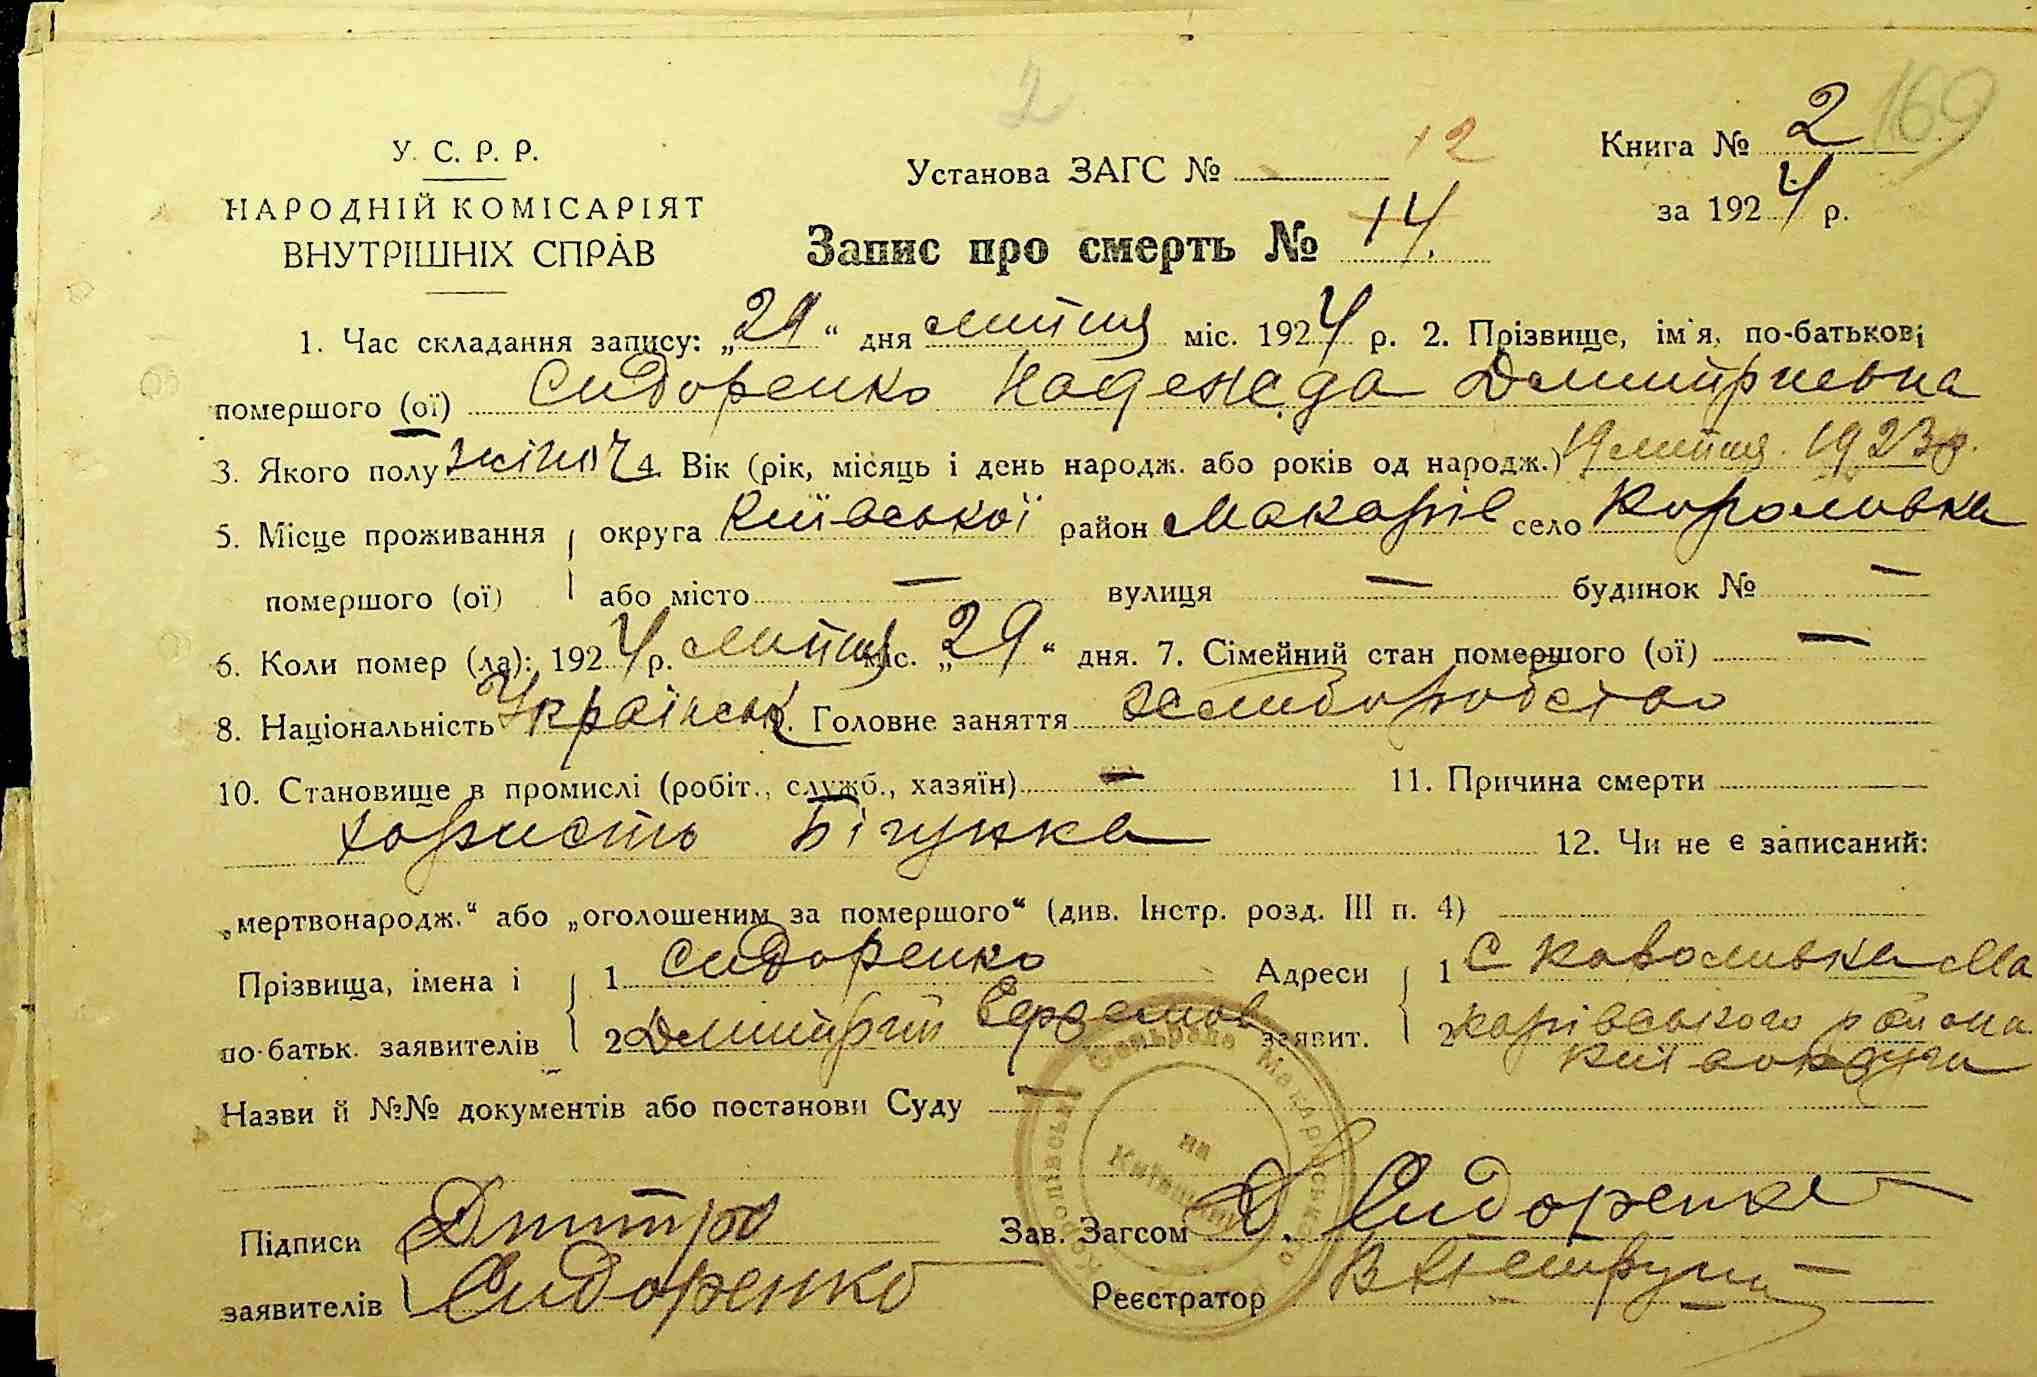 2
169
У. С. Р. Р.
НАРОДНІЙ КОМІСАРІЯТ
ВНУТРІШНІХ СПРАВ
Установа ЗАГС № 12
Книга № 2
за 1924 р.
Запис про смерть № 14.
1. Час складання запису: „29“ дня липня міс. 1924 р. 2. Прізвище, ім'я, по-батькові
помершого (ої) Сидоренко Надежда Дмитриевна
3. Якого полу жіноч 4. Вік (рік, місяць і день народж. або років од народж.) 19 липня. 1923 р.
5. Місце проживання округа Київської район Макарів село Короливка
помершого (ої) або місто — вулиця — будинок № —
6. Коли помер (ла): 1924 р. липня міс. „29“ дня. 7. Сімейний стан помершого (ої) —
8. Національність Українськ 9. Головне заняття хлиборобство
10. Становище в промислі (робіт., служб., хазяїн) — 11. Причина смерти
хористь Бігунка 12. Чи не є записаний:
„мертвонародж.“ або „оголошеним за помершого“ (див. Інстр. розд. III п. 4)
Прізвища, імена і 1 Сидоренко Адреси 1 С Каволивка Ма
по-батьк. заявителів 2 Дмитрій заявит. 2 карівського района
Київ округа
Назви й №№ документів або постанови Суду —
Підписи Дмитро Зав. Загсом Д. Сидоренко
заявителів Сидоренко Реєстратор
Королівська Сельрада Макарівського
на Київщині